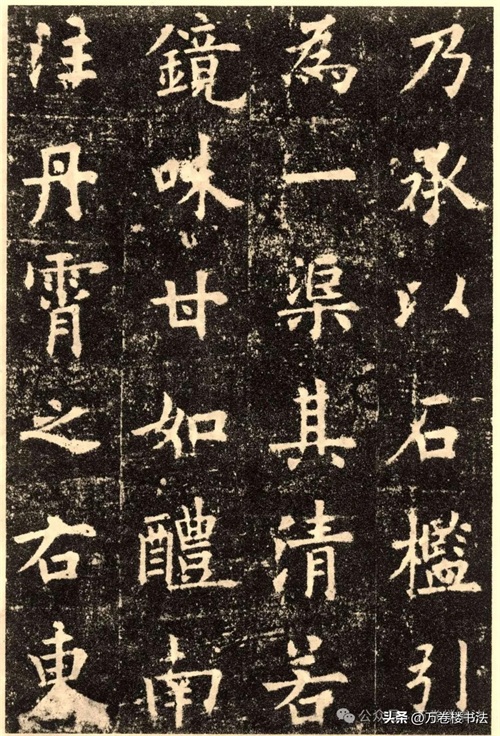 乃承以石檻引
為一渠其清若
鏡味甘如醴南
注丹霄之右東
头条 @万卷楼书法